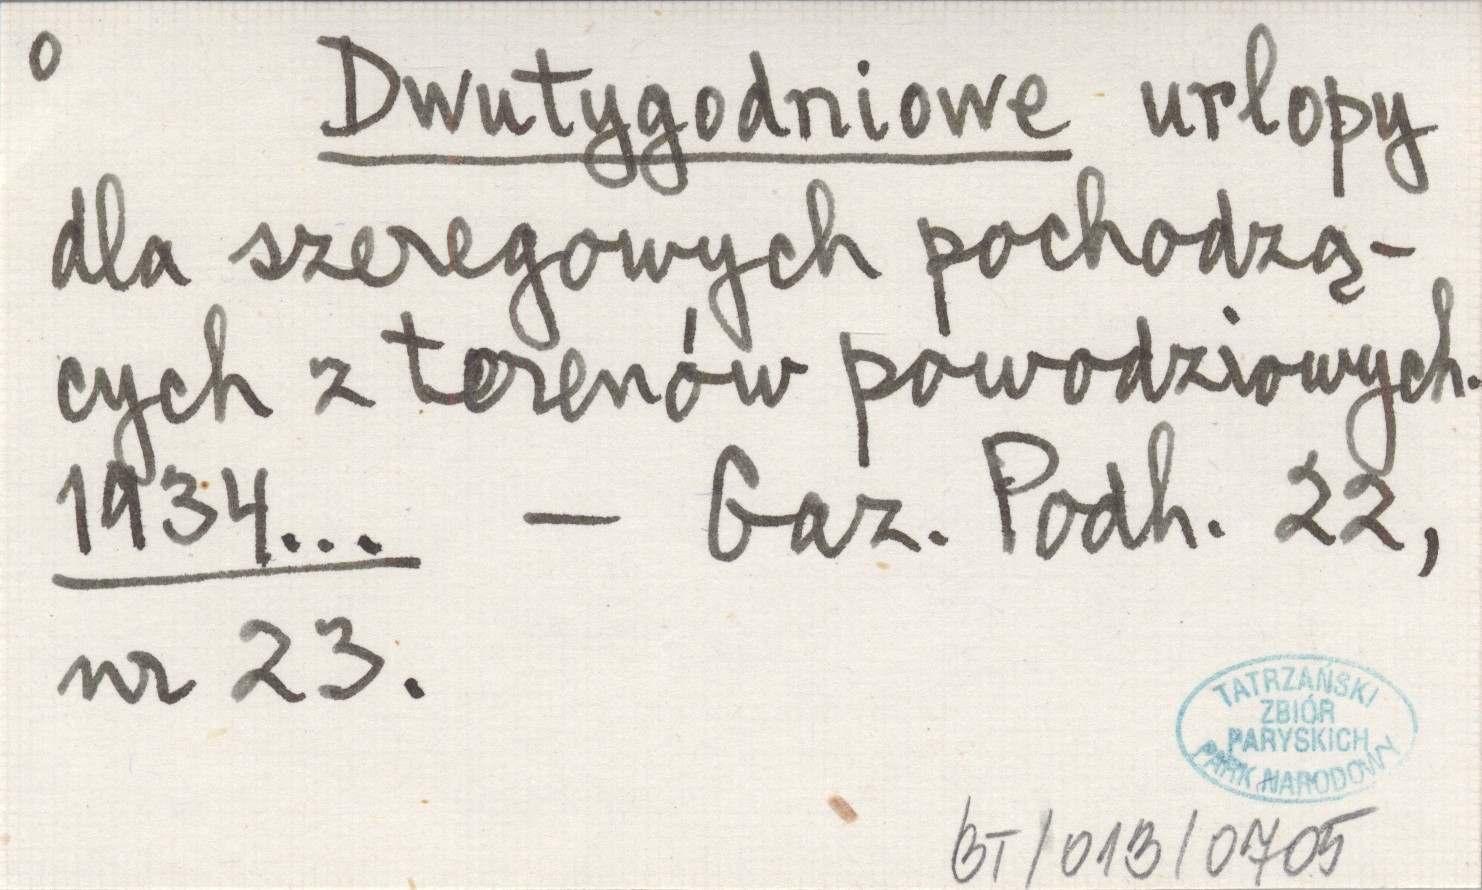 o Dwutygodniowe urlopy
dla szeregowych pochodzą-
cych z terenów powodziowych.
1934... — Gaz. Podh. 22,
nr 23.
TATRZAŃSKI
ZBIÓR
PARYSKICH
PARK NARODOWY
BT/013/0705